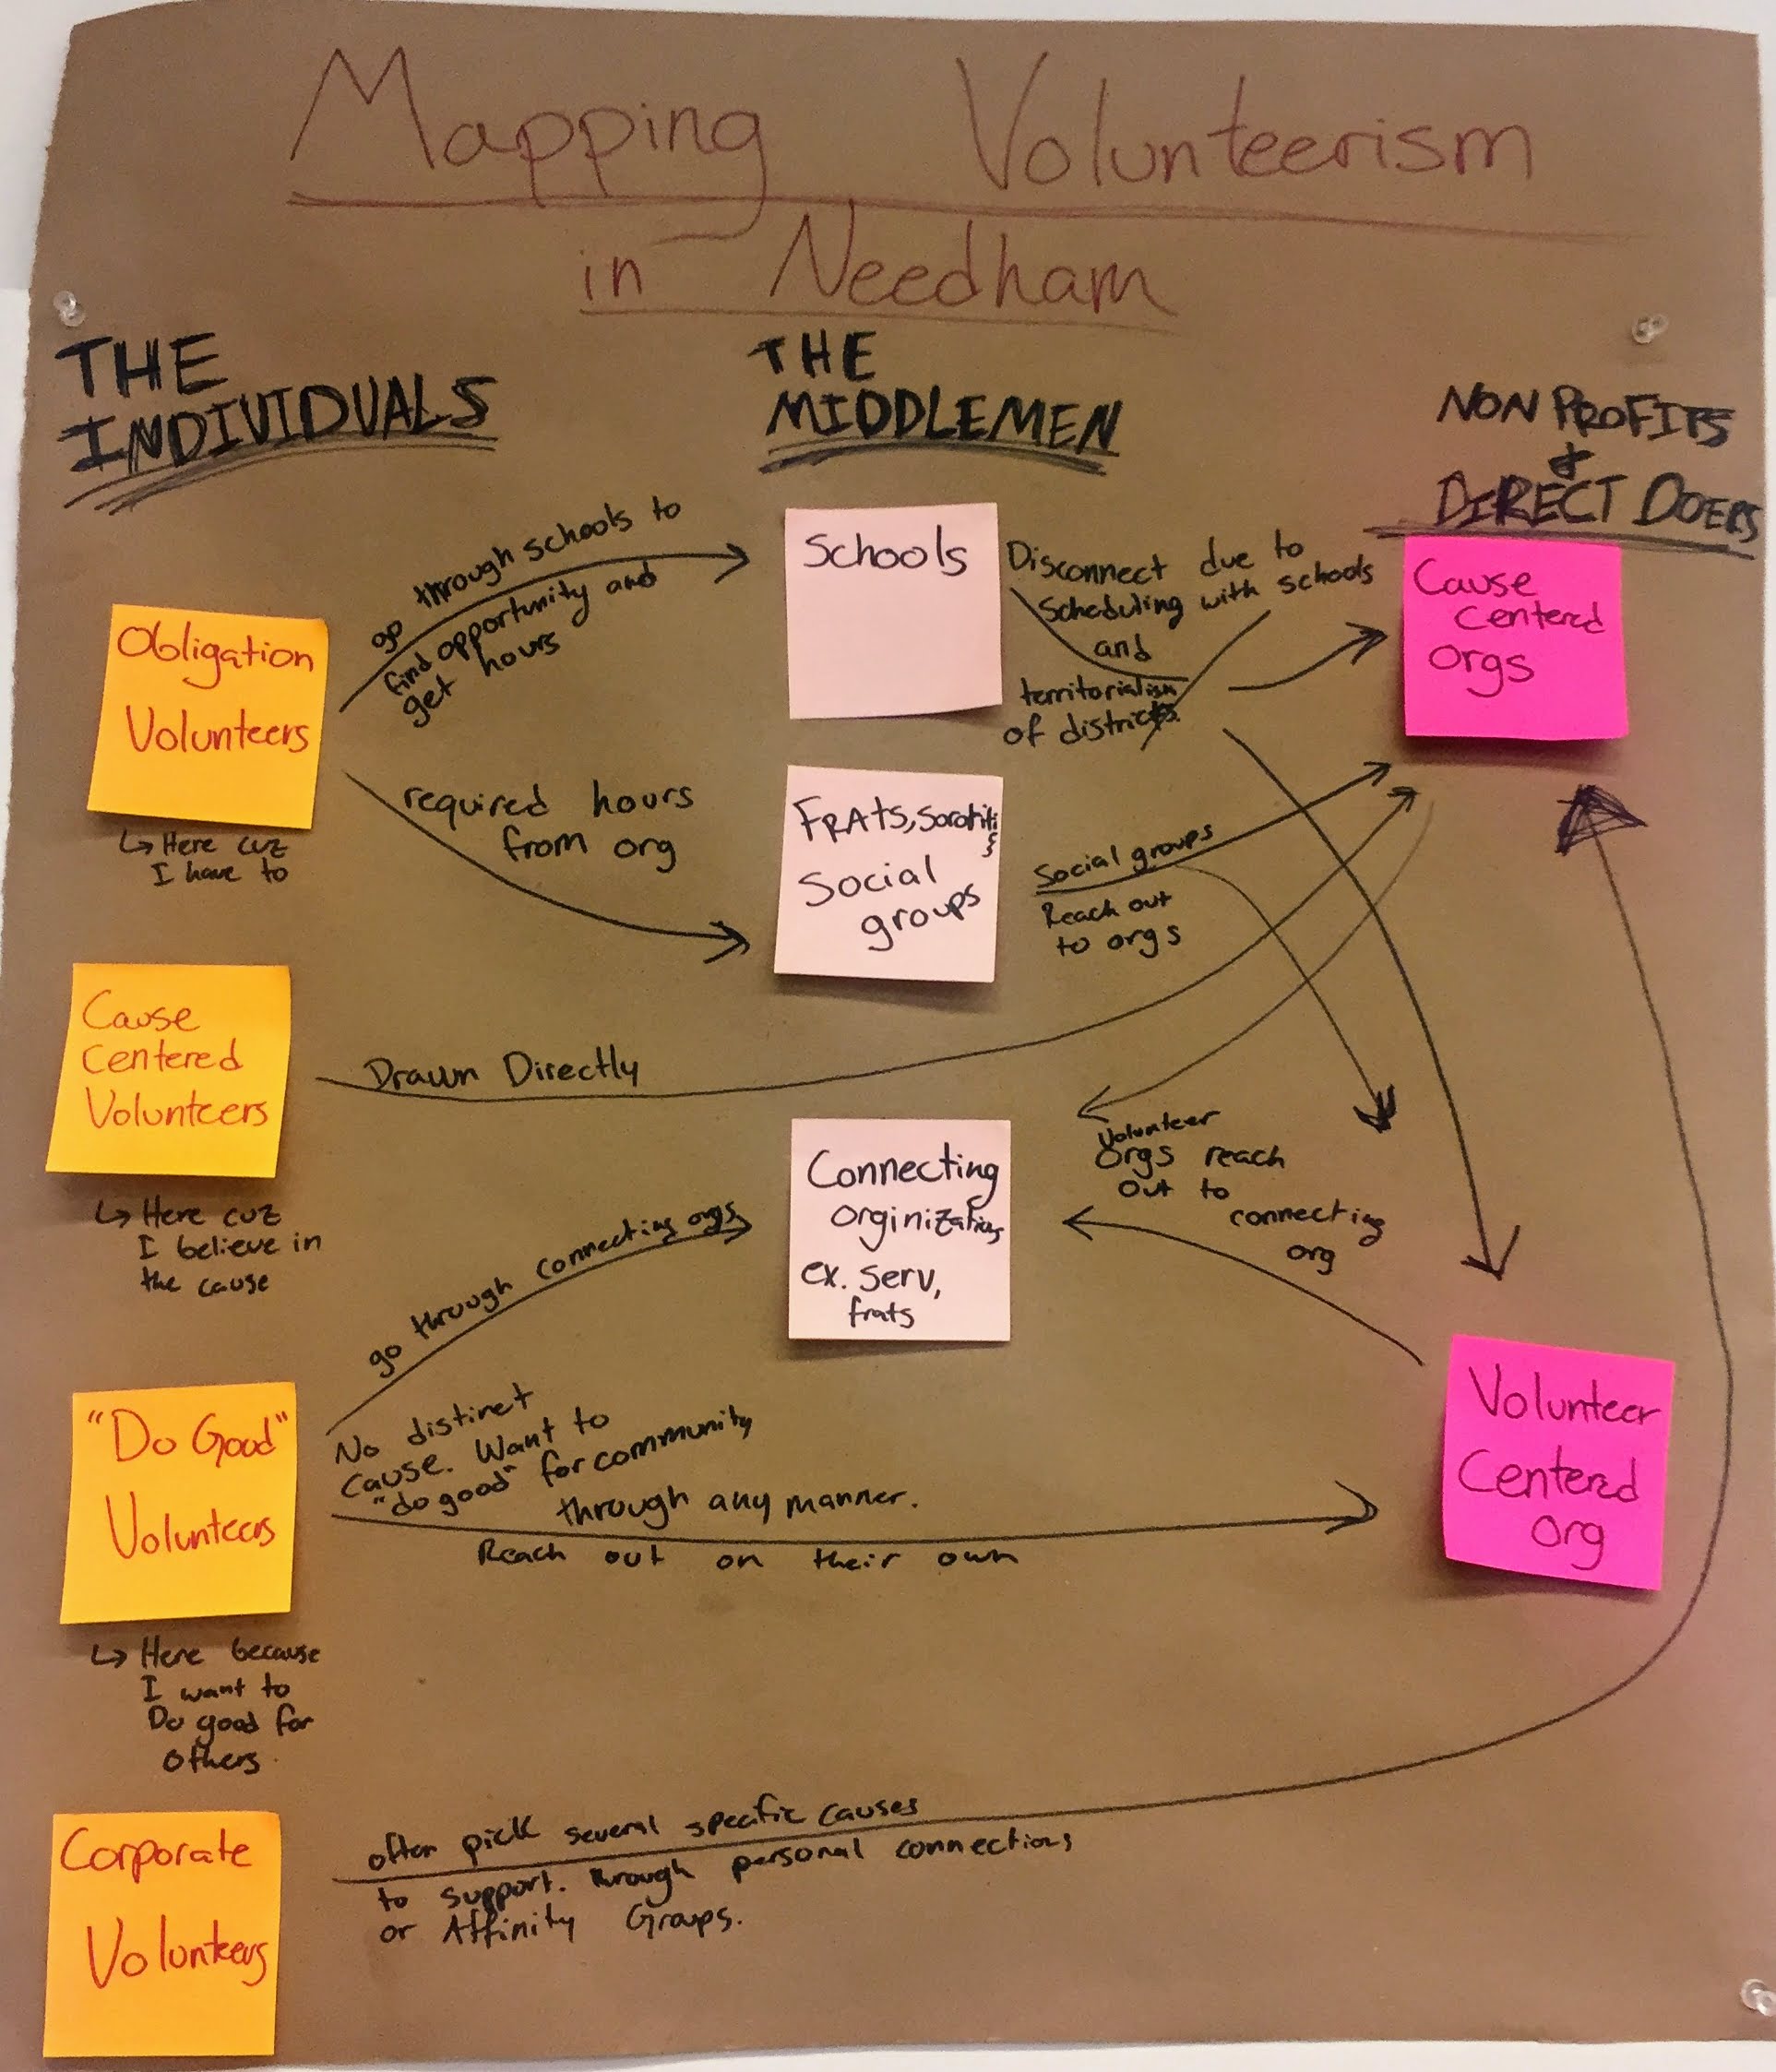 Mapping Volunteerism
in Needham
THE
INDIVIDUALS
THE
MIDDLEMEN
NON PROFITS
+
DIRECT DOERS
Obligation
Volunteers
↳ Here cuz
I have to
go through schools to
find opportunity and
get hours
required hours
from org
Schools
Disconnect due to
Scheduling with schools
and
territorialism
of districts.
Cause
Centered
orgs
FRAts, Sororiti
es
Social
groups
Social groups
Reach out
to orgs
Cause
Centered
Volunteers
↳ Here cuz
I believe in
the cause
Drawn Directly
Connecting
Orginizations
ex. Serv,
frats
Volunteer
Orgs reach
out to
connecting
org
"Do Good"
Volunteers
↳ Here because
I want to
Do good for
others.
go through connecting orgs
No distinct
Cause. Want to
"do good" for community
through any manner.
Reach out on their own
Volunteer
Centered
Org
Corporate
Volunteers
often pick several specific causes
to support. through personal connections
or Affinity Groups.